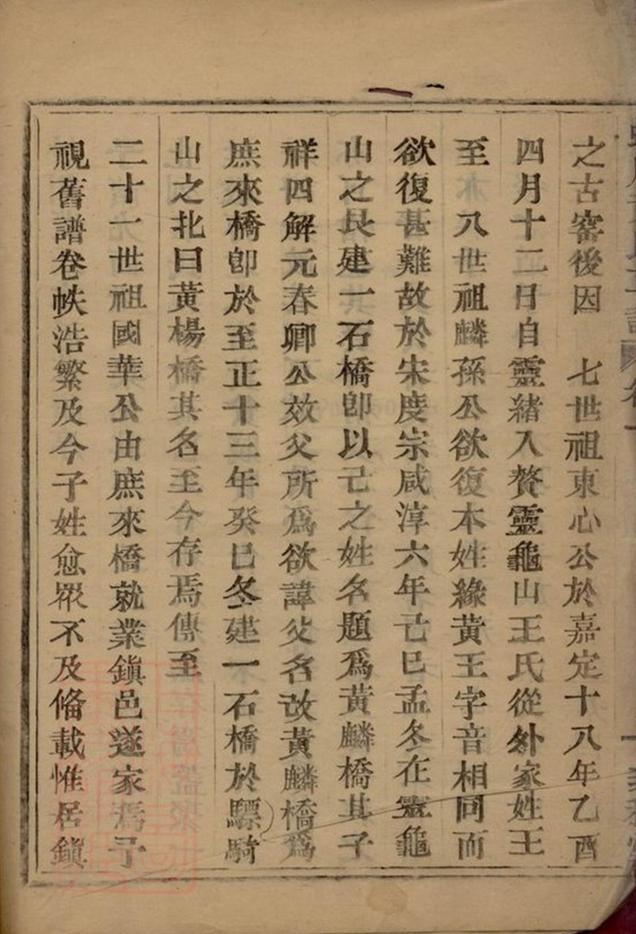 之古窰後因　七世祖東心公於嘉定十八年乙酉
四月十二日自靈緒入贅靈龜山王氏從外家姓王
至　八世祖麟孫公欲復本姓緣黃王字音相同而
欲復甚難故於宋度宗咸淳六年己巳孟冬在靈龜
山之艮建一石橋卽以己之姓名題爲黃麟橋其子
祥四解元春卿公效父所爲欲諱父名改黃麟橋爲
庶來橋卽於至正十三年癸巳冬建一石橋於驃騎
山之北曰黃楊橋其名至今存焉傳至
二十一世祖國華公由庶來橋就業鎭邑遂家焉予
視舊譜卷帙浩繁及今子姓愈眾不及偹載惟居鎭